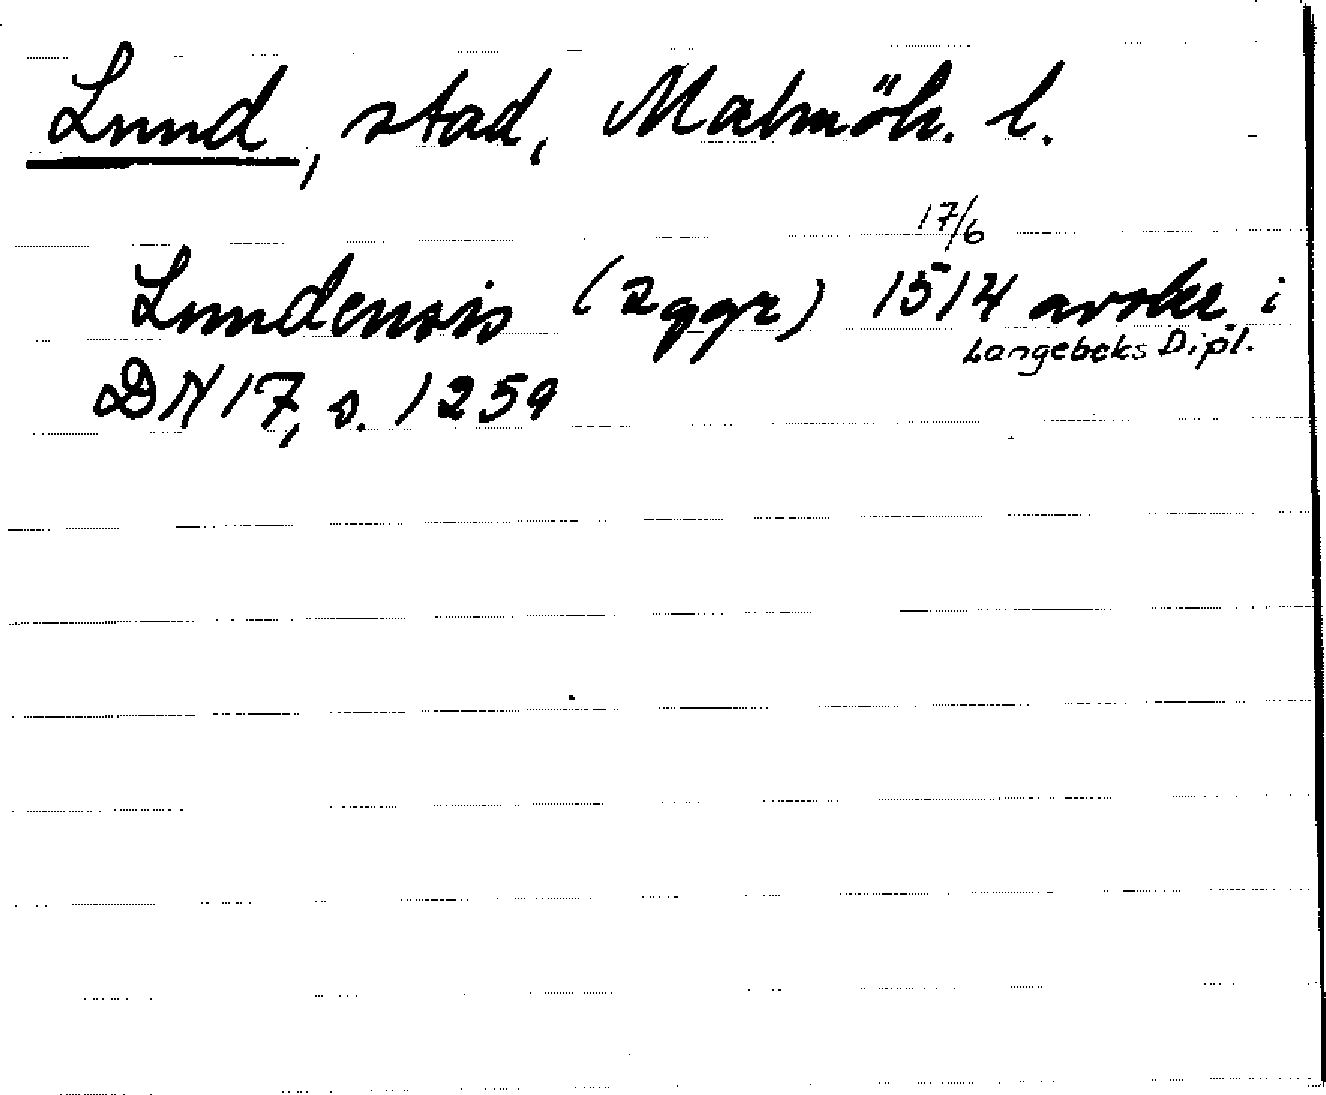 Lund, stad, Malmöh. l.
17/6
Lundensis (2ggr) 1514 avskr. i
Langebeks Dipl.
DN 17, s. 1259